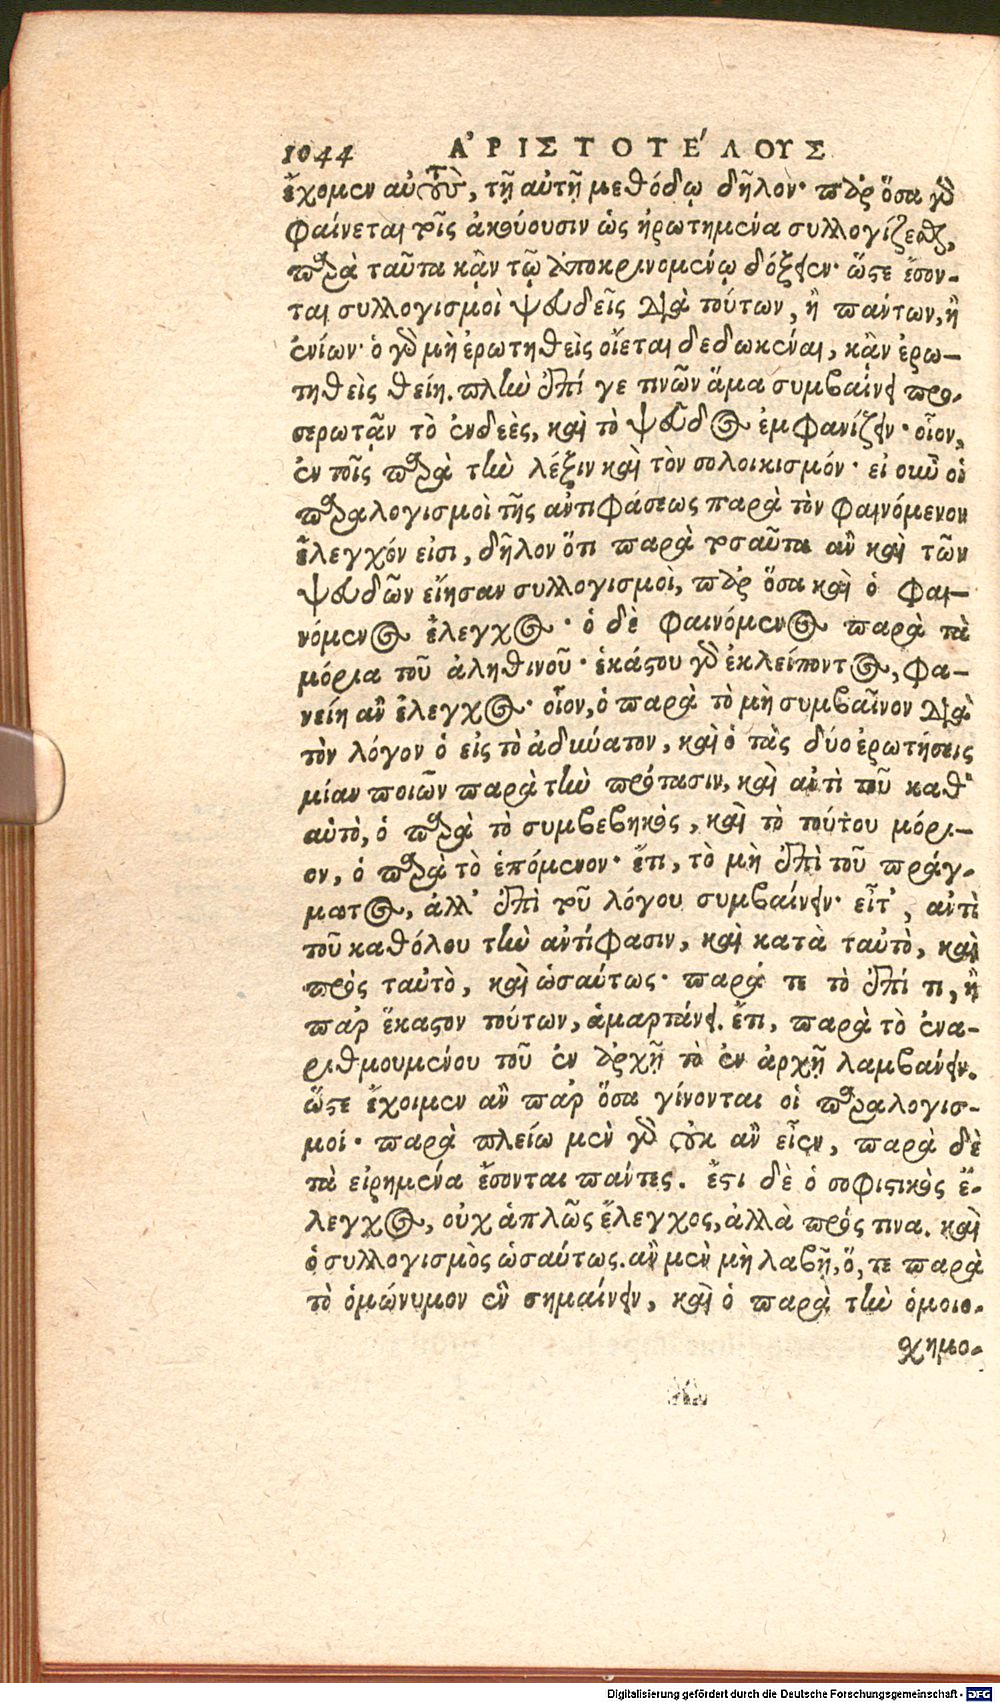 1044 ΑʼΡΙΣΤΟΤΕ΄ΛΟΥΣ
ἔχομεν αὐτοὺ, τῇ αὐτῇ μεθόδῳ δῆλον· παρ ὅσα γὸ
φαίνεται τοῖς ἀκούουσιν ὡς ἠρωτημένα συλλογίζεσθαι,
παρὰ ταῦτα κᾂν τῷ ἀποκρινομένῳ δόξειεν· ὥστε ἔσον-
ται συλλογισμοὶ ψευδεῖς διὰ τούτων, ἢ πάντων, ἢ
ἐνίων· ὁ γὸ μὴ ἐρωτηθεὶς οἴεται δεδωκέναι, κᾂν ἐρω-
τηθεὶς θείη. πλὴν ἐπί γε τινῶν ἅμα συμβαίνει προ-
σερωτᾷν τὸ ἐνδεὲς, καὶ τὸ ψεῦδος ἐμφανίζειν· οἷον,
ἐν τοῖς παρὰ τὴν λέξιν καὶ τὸν σολοικισμόν· εἰ οὖν οἱ
παραλογισμοὶ τῆς ἀντιφάσεως παρὰ τὸν φαινόμενον
ἔλεγχόν εἰσι, δῆλον ὅτι παρὰ τοσαῦτα ἂν καὶ τῶν
ψευδῶν εἴησαν συλλογισμοὶ, παρ ὅσα καὶ ὁ φαι-
νόμενος ἔλεγχος· ὁ δὲ φαινόμενος παρὰ τὰ
μόρια τοῦ ἀληθινοῦ· ἑκάστου γὸ ἐκλείποντος, φα-
νείη ἂν ἔλεγχος· οἷον, ὁ παρὰ τὸ μὴ συμβαῖνον διὰ
τὸν λόγον ὁ εἰς τὸ ἀδύνατον, καὶ ὁ τὰς δύο ἐρωτήσεις
μίαν ποιῶν παρὰ τὴν πρότασιν, καὶ ἀντὶ τοῦ καθʼ
αὑτὸ, ὁ παρὰ τὸ συμβεβηκὸς, καὶ τὸ τούτου μόρι-
ον, ὁ παρὰ τὸ ἑπόμενον· ἔτι, τὸ μὴ ἐπὶ τοῦ πράγ-
ματος, ἀλλʼ ἐπὶ τοῦ λόγου συμβαίνειν· εἶτʼ, ἀντὶ
τοῦ καθόλου τὴν ἀντίφασιν, καὶ κατὰ ταὐτὸ, καὶ
πρὸς ταὐτὸ, καὶ ὡσαύτως· παρά τε τὸ ἐπί τι, ἢ
παρ ἕκαστον τούτων, ἁμαρτάνει. ἔτι, παρὰ τὸ ἐνα-
ριθμουμένου τοῦ ἐν ἀρχῇ τὸ ἐν ἀρχῇ λαμβάνειν.
ὥστε ἔχοιμεν ἂν παρ ὅσα γίνονται οἱ παραλογισ-
μοί· παρὰ πλείω μὲν γὸ οὐκ ἂν εἶεν, παρὰ δὲ
τὰ εἰρημένα ἔσονται πάντες. ἔστι δὲ ὁ σοφιστικὸς ἔ-
λεγχος, οὐχ ἁπλῶς ἔλεγχος, ἀλλὰ πρός τινα. καὶ
ὁ συλλογισμὸς ὡσαύτως. ἂν μὲν μὴ λάβῃ, ὅ, τε παρὰ
τὸ ὁμώνυμον ἓν σημαίνειν, καὶ ὁ παρὰ τὴν ὁμοιο-
σχημο-
Digitalisierung gefördert durch die Deutsche Forschungsgemeinschaft - DFG